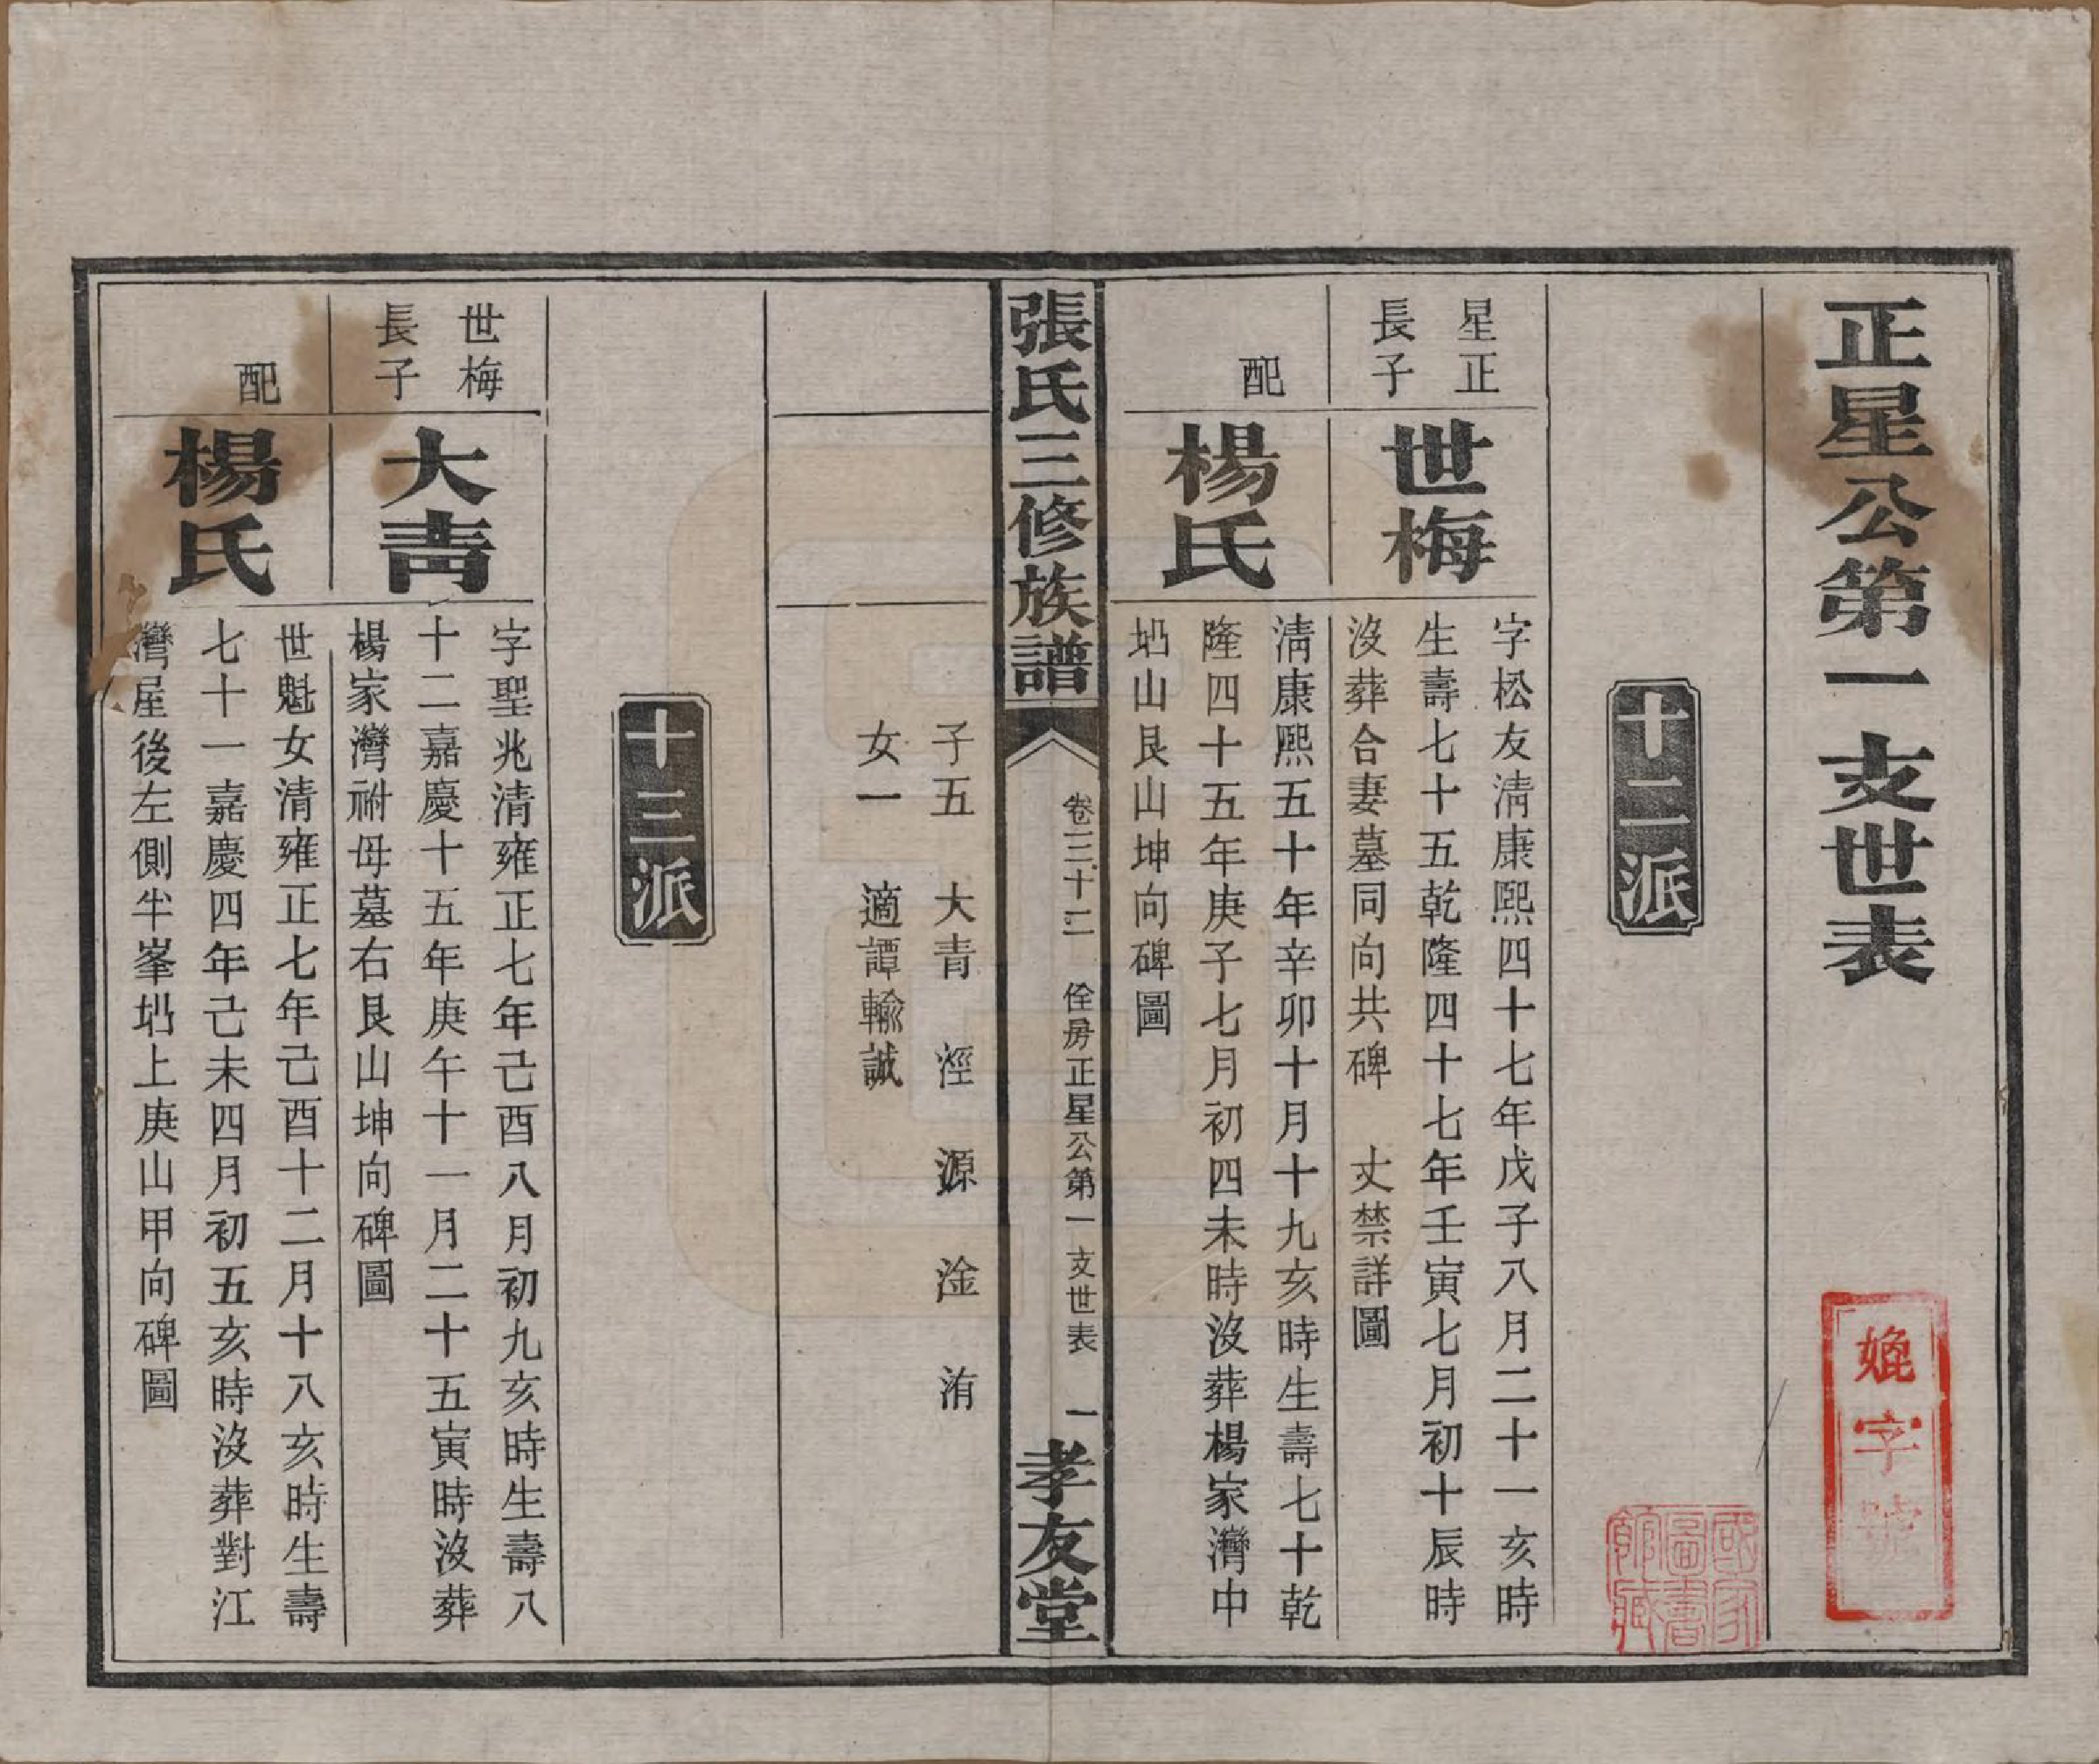 正星公第一支世表
嬎字號
國家圖書館藏
十二派
星正
長子
世梅
字松友淸康熙四十七年戊子八月二十一亥時
生壽七十五乾隆四十七年壬寅七月初十辰時
沒葬合妻墓同向共碑　丈禁詳圖
配
楊氏
淸康熙五十年辛卯十月十九亥時生壽七十乾
隆四十五年庚子七月初四未時沒葬楊家灣中
坭山艮山坤向碑圖
張氏三修族譜
卷三十二　佺房正星公第一支世表　一
孝友堂
子五　大青　涇　源　淦　洧
女一　適譚輸誠
十三派
世梅
長子
大青
字聖兆清雍正七年己酉八月初九亥時生壽八
十二嘉慶十五年庚午十一月二十五寅時沒葬
楊家灣祔母墓右艮山坤向碑圖
配
楊氏
世魁女清雍正七年己酉十二月十八亥時生壽
七十一嘉慶四年己未四月初五亥時沒葬對江
灣屋後左側半峯坭上庚山甲向碑圖